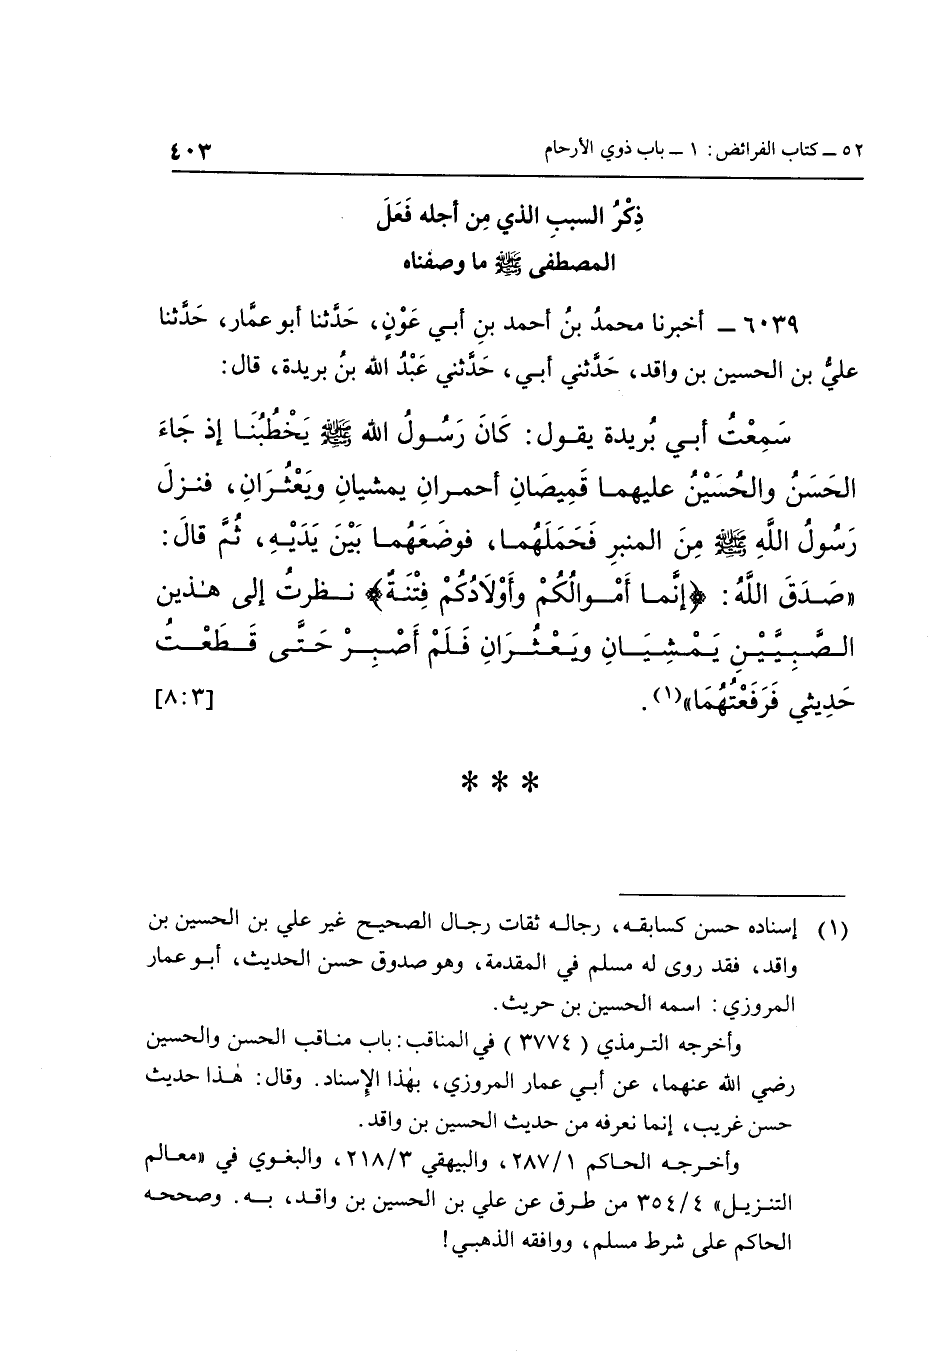 ٥٢ ـ كتاب الفرائض: ١ ـ باب ذوي الأرحام ٤٠٣
ذِكْرُ السببِ الذي مِن أجله فَعَلَ
المصطفى ﷺ ما وصفناه
٦٠٣٩ ـ أخبرنا محمدُ بنُ أحمد بنِ أبي عَوْنٍ، حَدَّثنا أبو عمَّار، حَدَّثنا
عليُّ بن الحسين بن واقد، حَدَّثني أبي، حَدَّثني عَبْدُ الله بنُ بريدة، قال:
سَمِعْتُ أبي بُريدة يقول: كَانَ رَسُولُ الله ﷺ يَخْطُبُنَا إذ جَاءَ
الحَسَنُ والحُسَيْنُ عليهما قَمِيصَانِ أحمرانِ يمشيانِ ويَعْثُرَانِ، فنزلَ
رَسُولُ اللَّهِ ﷺ مِنَ المنبرِ فَحَمَلَهُما، فوضَعَهُما بَيْنَ يَدَيْهِ، ثُمَّ قالَ:
«صَدَقَ اللَّهُ: ﴿إنَّما أَمْوالُكُمْ وأَوْلَادُكُمْ فِتْنَةٌ﴾ نظرتُ إلى هٰذين
الصَّبِيَّيْنِ يَمْشِيَانِ ويَعْثُرَانِ فَلَمْ أَصْبِرْ حَتَّى قَطَعْتُ
حَدِيثي فَرَفَعْتُهُمَا»(١). [٨:٣]
* * *
(١) إسناده حسن كسابقه، رجاله ثقات رجال الصحيح غير علي بن الحسين بن
واقد، فقد روى له مسلم في المقدمة، وهو صدوق حسن الحديث، أبو عمار
المروزي: اسمه الحسين بن حريث.
وأخرجه الترمذي (٣٧٧٤) في المناقب: باب مناقب الحسن والحسين
رضي الله عنهما، عن أبي عمار المروزي، بهٰذا الإسناد. وقال: هٰذا حديث
حسن غريب، إنما نعرفه من حديث الحسين بن واقد.
وأخرجه الحاكم ٢٨٧/١، والبيهقي ٢١٨/٣، والبغوي في «معالم
التنزيل» ٣٥٤/٤ من طرق عن علي بن الحسين بن واقد، به. وصححه
الحاكم على شرط مسلم، ووافقه الذهبي!